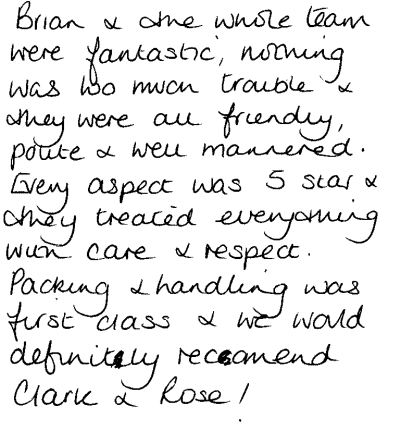 Brian & the whole team
were fantastic, nothing
was too much trouble &
they were all friendly,
polite & well mannered.
Every aspect was 5 star &
they treated everything
with care & respect.
Packing & handling was
first class & we would
definitely reccomend
Clark & Rose!